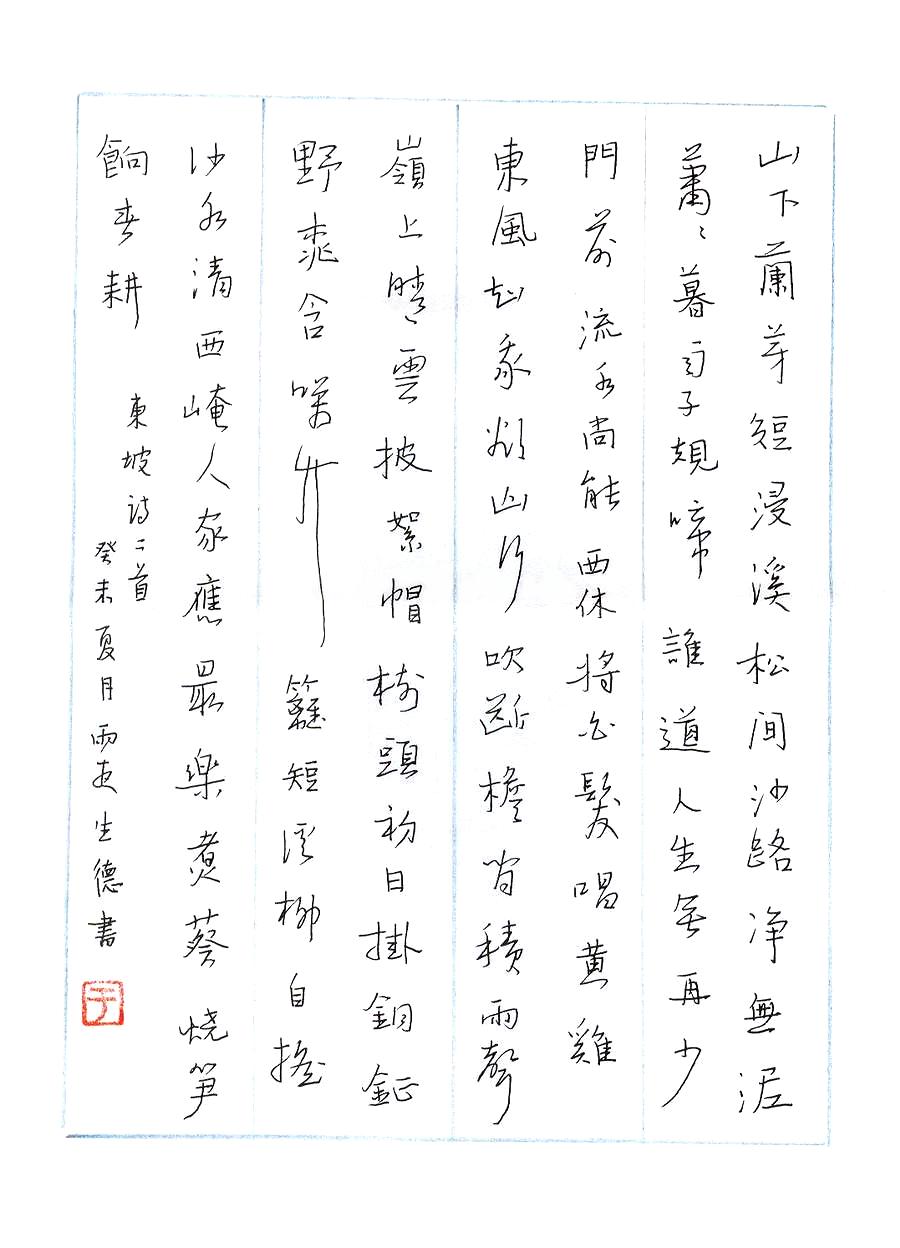 山下蘭芽短浸溪松间沙路净無泥
蕭〻暮雨子規啼 誰道人生無再少
門前流水尚能西休將白髮唱黄雞
東風知我欲山行 吹斷檐间積雨聲
嶺上晴雲披絮帽樹頭初日掛銅鉦
野桃含笑竹籬短溪柳自搖
沙水清西崦人家應最樂煮葵烧笋
餉春耕
東坡诗二首
癸未夏月雨夜生德書
于